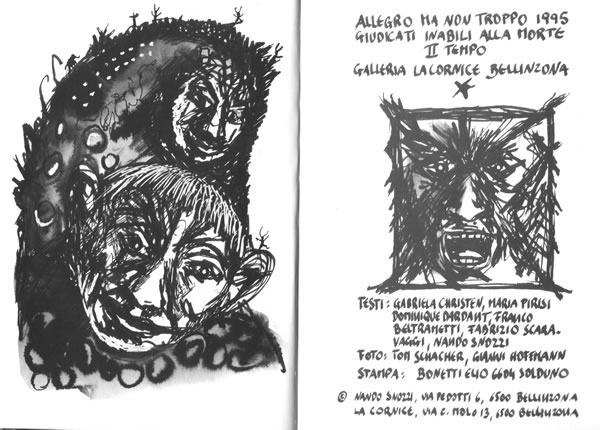 ALLEGRO MA NON TROPPO 1995
GIUDICATI INABILI ALLA MORTE
II TEMPO
GALLERIA LA CORNICE BELLINZONA
TESTI: GABRIELA CHRISTEN, MARIA PIRISI
DOMINIQUE DARDANT, FRANCO
BELTRAMETTI, FABRIZIO SCARA-
VAGGI, NANDO SNOZZI
FOTO: TOM SCHACHER, GIANNI HOFFMANN
STAMPA: BONETTI ELIO 6604 SOLDUNO
© NANDO SNOZZI, VIA PEDOTTI 6, 6500 BELLINZONA
LA CORNICE, VIA C. MOLO 13, 6500 BELLINZONA